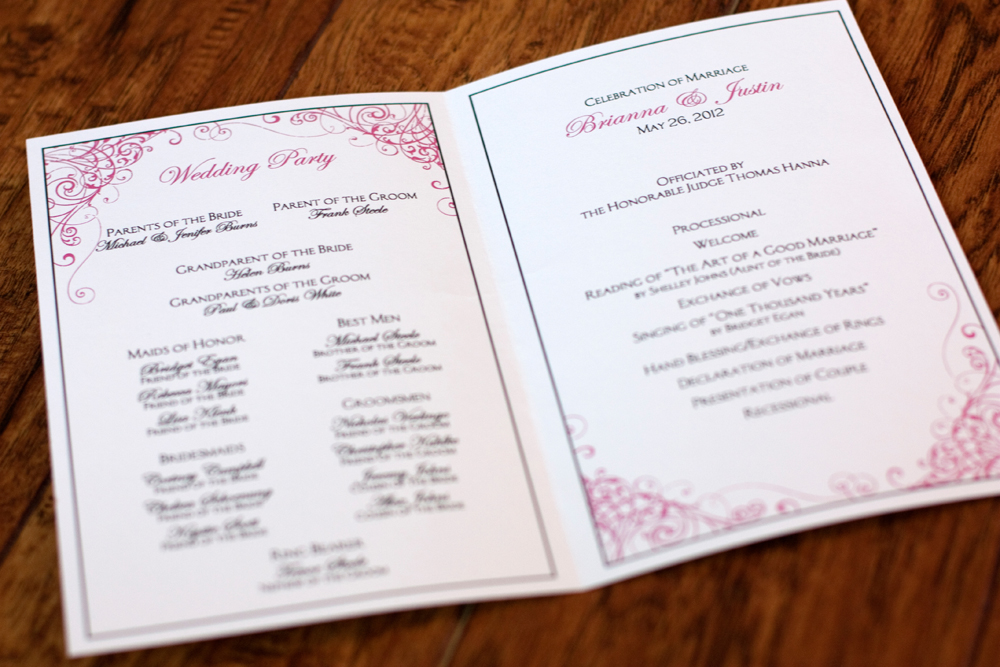 Wedding Party
Parents of the Bride
Michael & Jenifer Burns
Parent of the Groom
Frank Steele
Grandparent of the Bride
Helen Burns
Grandparents of the Groom
Paul & Doris White
Maids of Honor
Bridget Egan
Friend of the Bride
Rebecca
Friend of the Bride
Friend of the Bride
Bridesmaids
Courtney Campbell
Friend of the Bride
Chelsea
Friend of the Bride
Scott
Friend of the Bride
Best Men
Michael Steele
Brother of the Groom
Frank Steele
Brother of the Groom
Groomsmen
Nicholas
Friend of the Groom
Christopher
Friend of the Groom
Johns
Cousin of the Bride
Johns
Cousin of the Bride
Ring Bearer
of the Groom
Celebration of Marriage
Brianna & Justin
May 26, 2012
Officiated by
the Honorable Judge Thomas Hanna
Processional
Welcome
Reading of "The Art of a Good Marriage"
by Shelley Johns (Aunt of the Bride)
Exchange of Vows
Singing of "One Thousand Years"
by Bridget Egan
Hand Blessing/Exchange of Rings
Declaration of Marriage
Presentation of Couple
Recessional